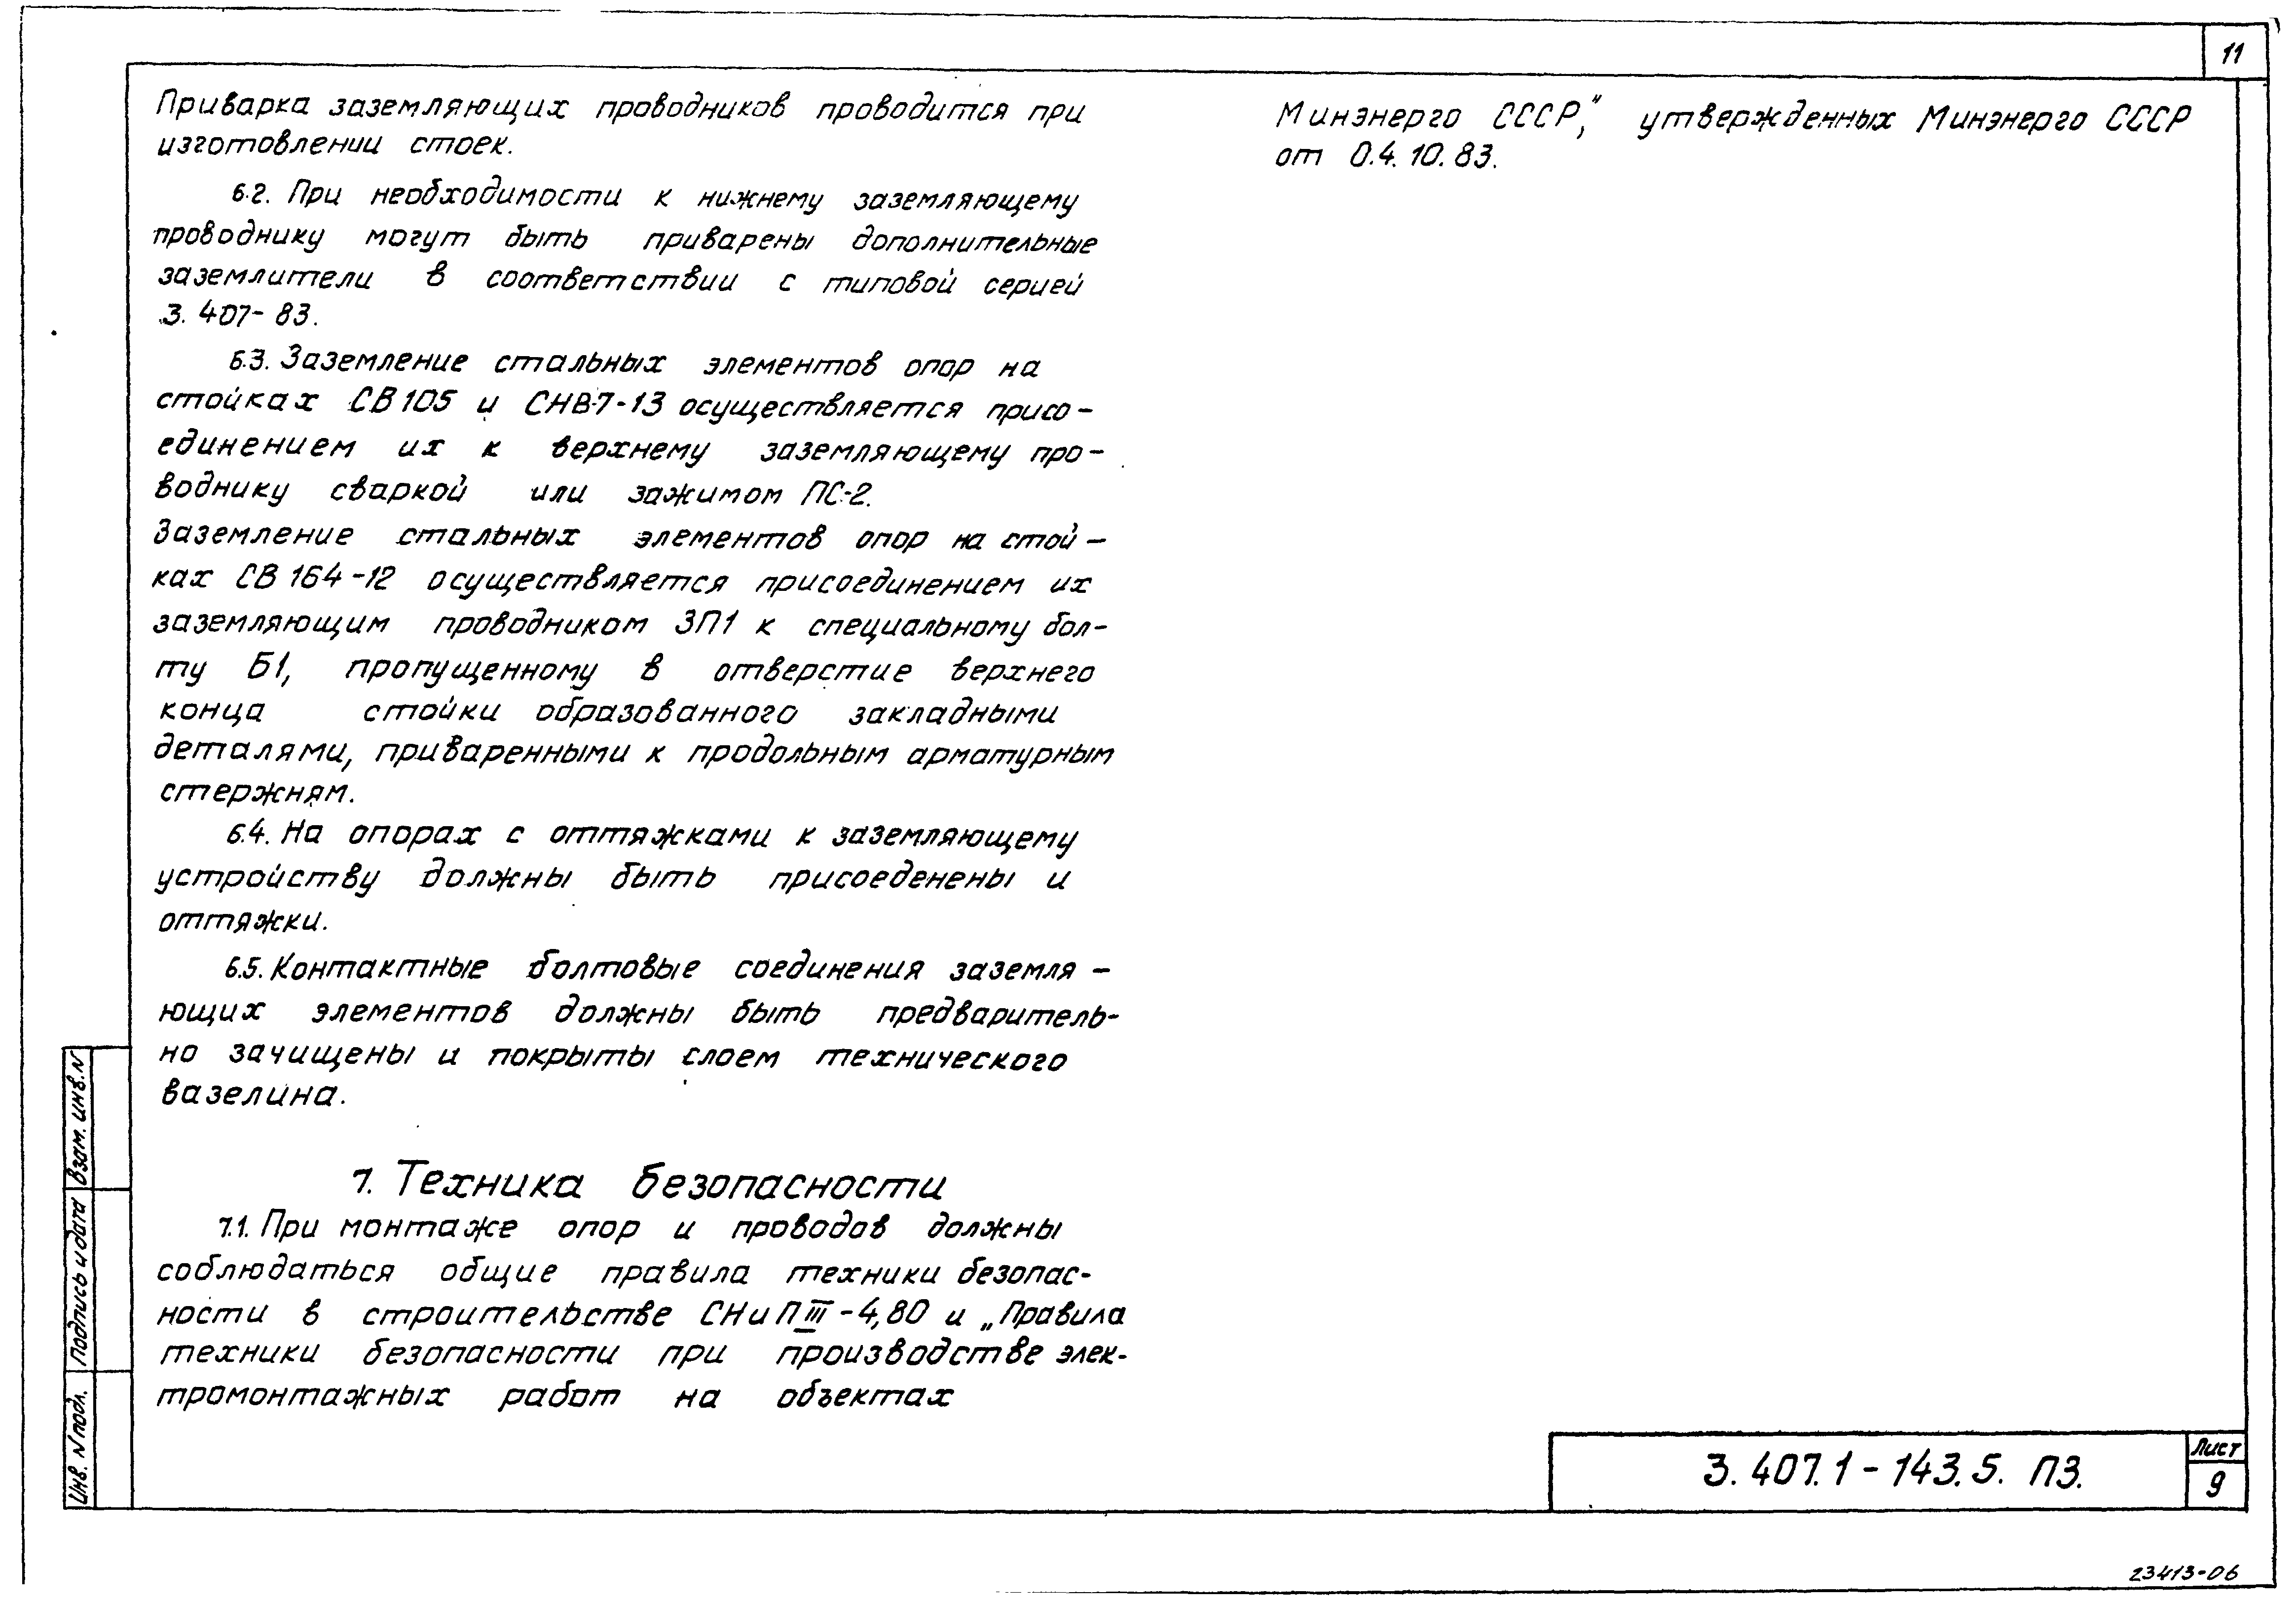 11
Приварка заземляющих проводников проводится при
изготовлении стоек.
6.2. При необходимости к нижнему заземляющему
проводнику могут быть приварены дополнительные
заземлители в соответствии с типовой серией
3.407-83.
6.3. Заземление стальных элементов опор на
стойках СВ105 и СНВ-7-13 осуществляется присо-
единением их к верхнему заземляющему про-
воднику сваркой или зажимом ПС-2.
Заземление стальных элементов опор на стой-
ках СВ164-12 осуществляется присоединением их
заземляющим проводником ЗП1 к специальному бол-
ту Б1, пропущенному в отверстие верхнего
конца стойки образованного закладными
деталями, приваренными к продольным арматурным
стержням.
6.4. На опорах с оттяжками к заземляющему
устройству должны быть присоеденены и
оттяжки.
6.5. Контактные болтовые соединения заземля-
ющих элементов должны быть предваритель-
но зачищены и покрыты слоем технического
вазелина.
7. Техника безопасности
7.1. При монтаже опор и проводов должны
соблюдаться общие правила техники безопас-
ности в строительстве СНиП III-4,80 и „Правила
техники безопасности при производстве элек-
тромонтажных работ на объектах
Минэнерго СССР," утвержденных Минэнерго СССР
от 0.4.10.83.
Взам. инв. N
Подпись и дата
Инв. N подл.
3.407.1-143.5. ПЗ.
Лист
9
23413-06